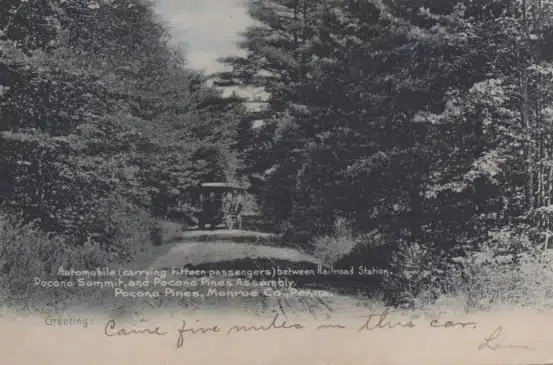 Automobile (carrying fifteen passengers) between Railroad Station,
Pocono Summit, and Pocono Pines Assembly,
Pocono Pines, Monroe Co., Penna.
Greeting:
Came five miles in this car.